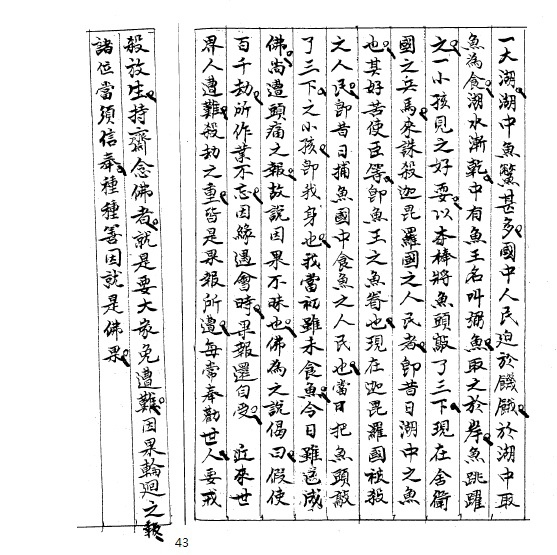 一大湖湖中魚鱉甚多。國中人民迫於饑餓。於湖中取
魚為食。湖水漸乾。中有魚王名叫弼魚。取之於岸。魚跳躍
之。一小孩見之好耍。以木棒將魚頭敲了三下。現在舍衛
國之兵馬來誅殺迦毘羅國之人民者。即昔日湖中之魚
也。其好苦使臣等。即魚王之魚眷也。現在迦毘羅國被殺
之人民。即昔日捕魚國中食魚之人民也。當日把魚頭敲
了三下。之小孩。即我身也。我當初雖未食魚。今日雖這成
佛。尚遭頭痛之報。故說因果不昧也。佛為之說偈曰。假使
百千劫。所作業不忘。因緣遇會時。果報還自受。 近來世
界人遭難。殺劫之重。皆是果報所遭。每常奉勸世人要戒
殺放生。持齋念佛者。就是要大家免遭難。因果輪迴之報
諸位當須信奉。種種善因就是佛果。
43